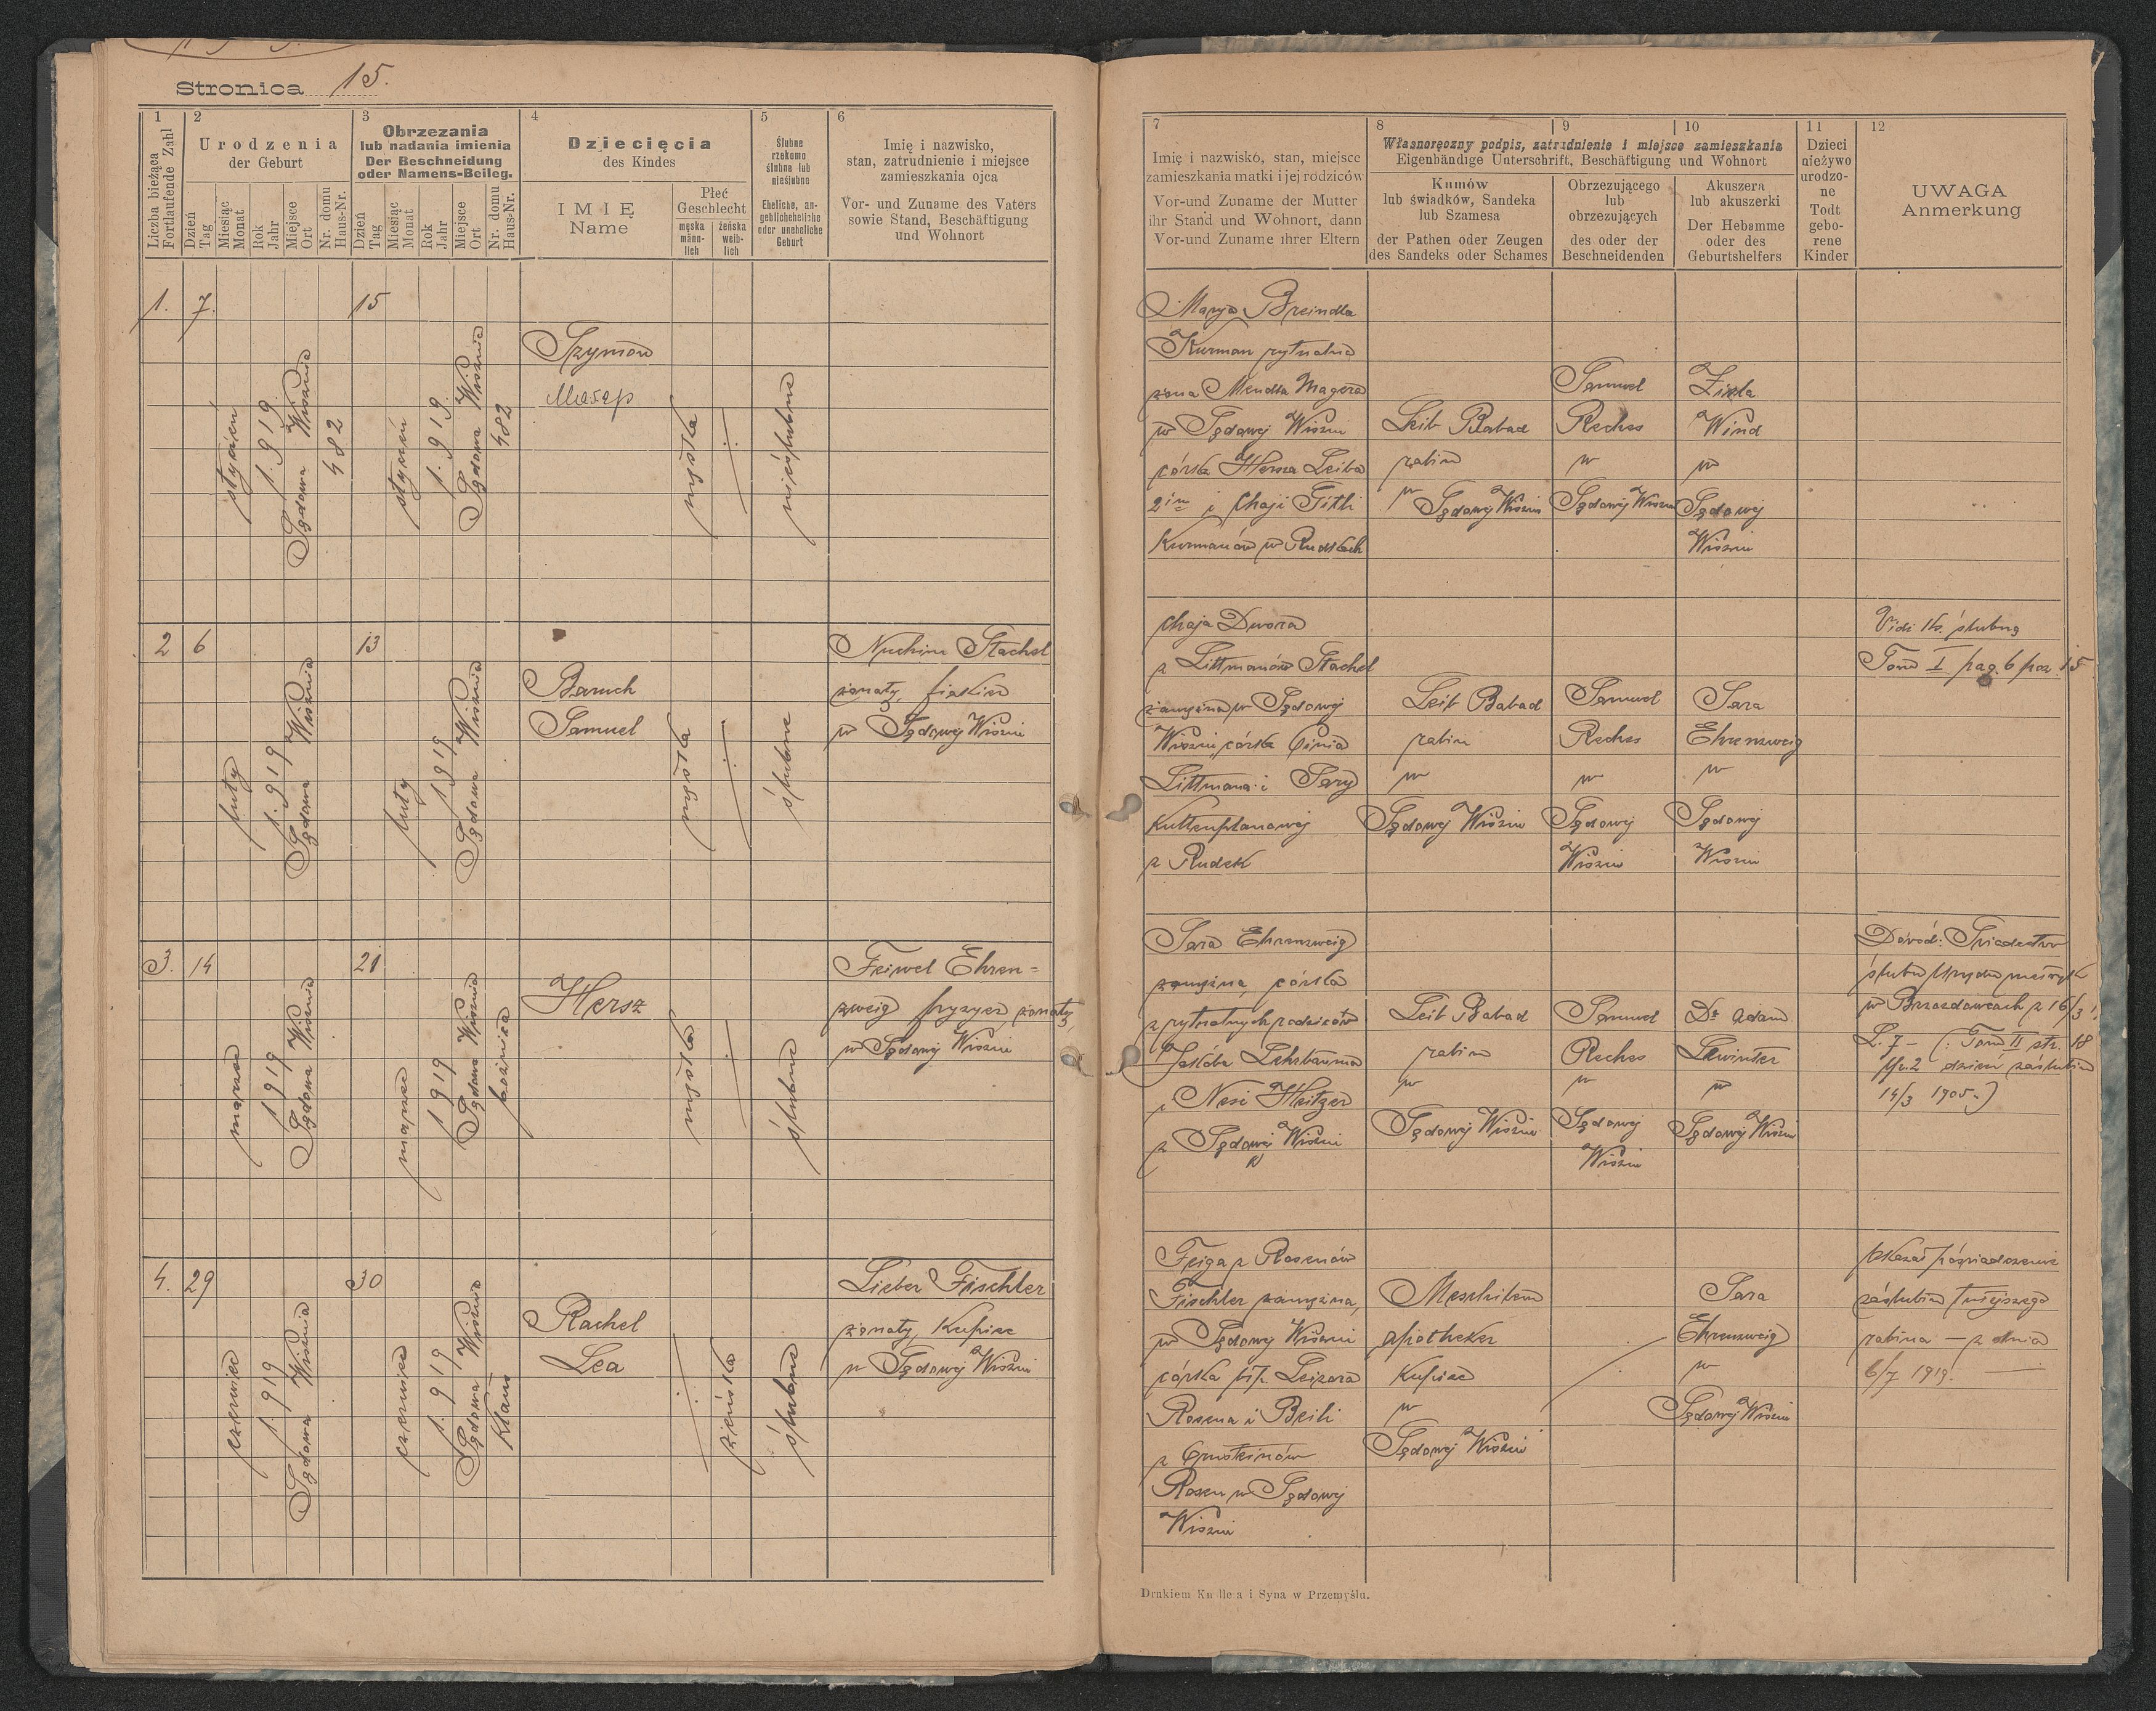 Stronica 15.
1
2
3
4
5
6
Liczba bieżąca
Fortlaufende Zahl
Urodzenia
der Geburt
Dzień
Tag
Miesiąc
Monat
Rok
Jahr
Miejsce
Ort
Nr. domu
Haus-Nr.
Obrzezania
lub nadania imienia
Der Beschneidung
oder Namens-Beileg.
Dzień
Tag
Miesiąc
Monat
Rok
Jahr
Miejsce
Ort
Nr. domu
Haus-Nr.
Dziecięcia
des Kindes
IMIĘ
Name
Płeć
Geschlecht
męska
männ-
lich
żeńska
weib-
lich
Ślubne
rzekomo
ślubne lub
nieślubne
Eheliche, an-
geblicheheliche
oder uneheliche
Geburt
Imię i nazwisko,
stan, zatrudnienie i miejsce
zamieszkania ojca
Vor- und Zuname des Vaters
sowie Stand, Beschäftigung
und Wohnort
1.
7.
styczeń
1919.
Sądowa Wisznia
482
15
styczeń
1919.
Sądowa Wisznia
482
Szymon
męska
nieślubne
2
6
luty
1919
Sądowa Wisznia
13
luty
1919
Sądowa Wisznia
Baruch
Samuel
męska
ślubne
Nuchim Stachel
żonaty, fiakier
w Sądowej Wiszni
3.
14
marzec
1919
Sądowa Wisznia
21
marzec
1919
Sądowa Wisznia
bożnica
Hersz
męska
ślubne
Feiwel Ehren=
zweig fryzyer, żonaty,
w Sądowej Wiszni
4.
29
czerwiec
1919
Sądowa Wisznia
30
czerwiec
1919
Sądowa Wisznia
Klaus
Rachel
Lea
żeńska
ślubne
Lieber Fischler
żonaty, kupiec
w Sądowej Wiszni
7
8
9
10
11
12
Imię i nazwisko, stan, miejsce
zamieszkania matki i jej rodziców
Vor-und Zuname der Mutter
ihr Stand und Wohnort, dann
Vor-und Zuname ihrer Eltern
Własnoręczny podpis, zatrudnienie i miejsce zamieszkania
Eigenhändige Unterschrift, Beschäftigung und Wohnort
Kumów
lub świadków, Sandeka
lub Szamesa
der Pathen oder Zeugen
des Sandeks oder Schames
Obrzezującego
lub
obrzezujących
des oder der
Beschneidenden
Akuszera
lub akuszerki
Der Hebamme
oder des
Geburtshelfers
Dzieci
nieżywo
urodzo-
ne
Todt
gebo-
rene
Kinder
UWAGA
Anmerkung
Marya Breindla
Kurman rytualna
żona Mendla Magera
w Sądowej Wiszni
córka Hersza Leiba
2im i Chaji Gitli
Kurmanów w Rudkach
Leib Babad
rabin
w Sądowej Wiszni
Samuel
Reches
w
Sądowej Wiszni
Wind
w
Sądowej
Wiszni
Chaja Dwora
z Littmanów Stachel
zamężna w Sądowej
Wiszni, córka
Littmana i Sary
z Rudek
Leib Babad
rabin
w
Sądowej Wiszni
Samuel
Reches
w
Sądowej
Wiszni
Sara
Ehrenzweig
w
Sądowej
Wiszni
Vidi ks. ślubną
Tom I pag. 6 poz. 15
Sara Ehrenzweig
zamężna, córka
z rytualnych rodziców
Jakóba Lehrbauma
i Nesi Heitzer
z Sądowej Wiszni
Leib Babad
rabin
w
Sądowej Wiszni
Samuel
Reches
w
Sądowej
Wiszni
Dr Adam
Lewinter
w
Sądowej Wiszni
Dowód: Świadectwo
ślubu Urzędu metryk
w Brzozdowcach z 16/3
L. 7 – (: Tom II str. 18
L. 2 dzień zaślubin
14/3 1905.)
Feiga z Rosenów
Fischler zamężna,
w Sądowej Wiszni
córka Leizora
Rosena i Beili
Rosen w Sądowej
Wiszni
apotheker
Kupiec
w
Sądowej Wiszni
Sara
Ehrenzweig
w
Sądowej Wiszni
zaślubin tutejszego
rabina – z dnia
6/7 1919.
Drukiem Knollera i Syna w Przemyślu.